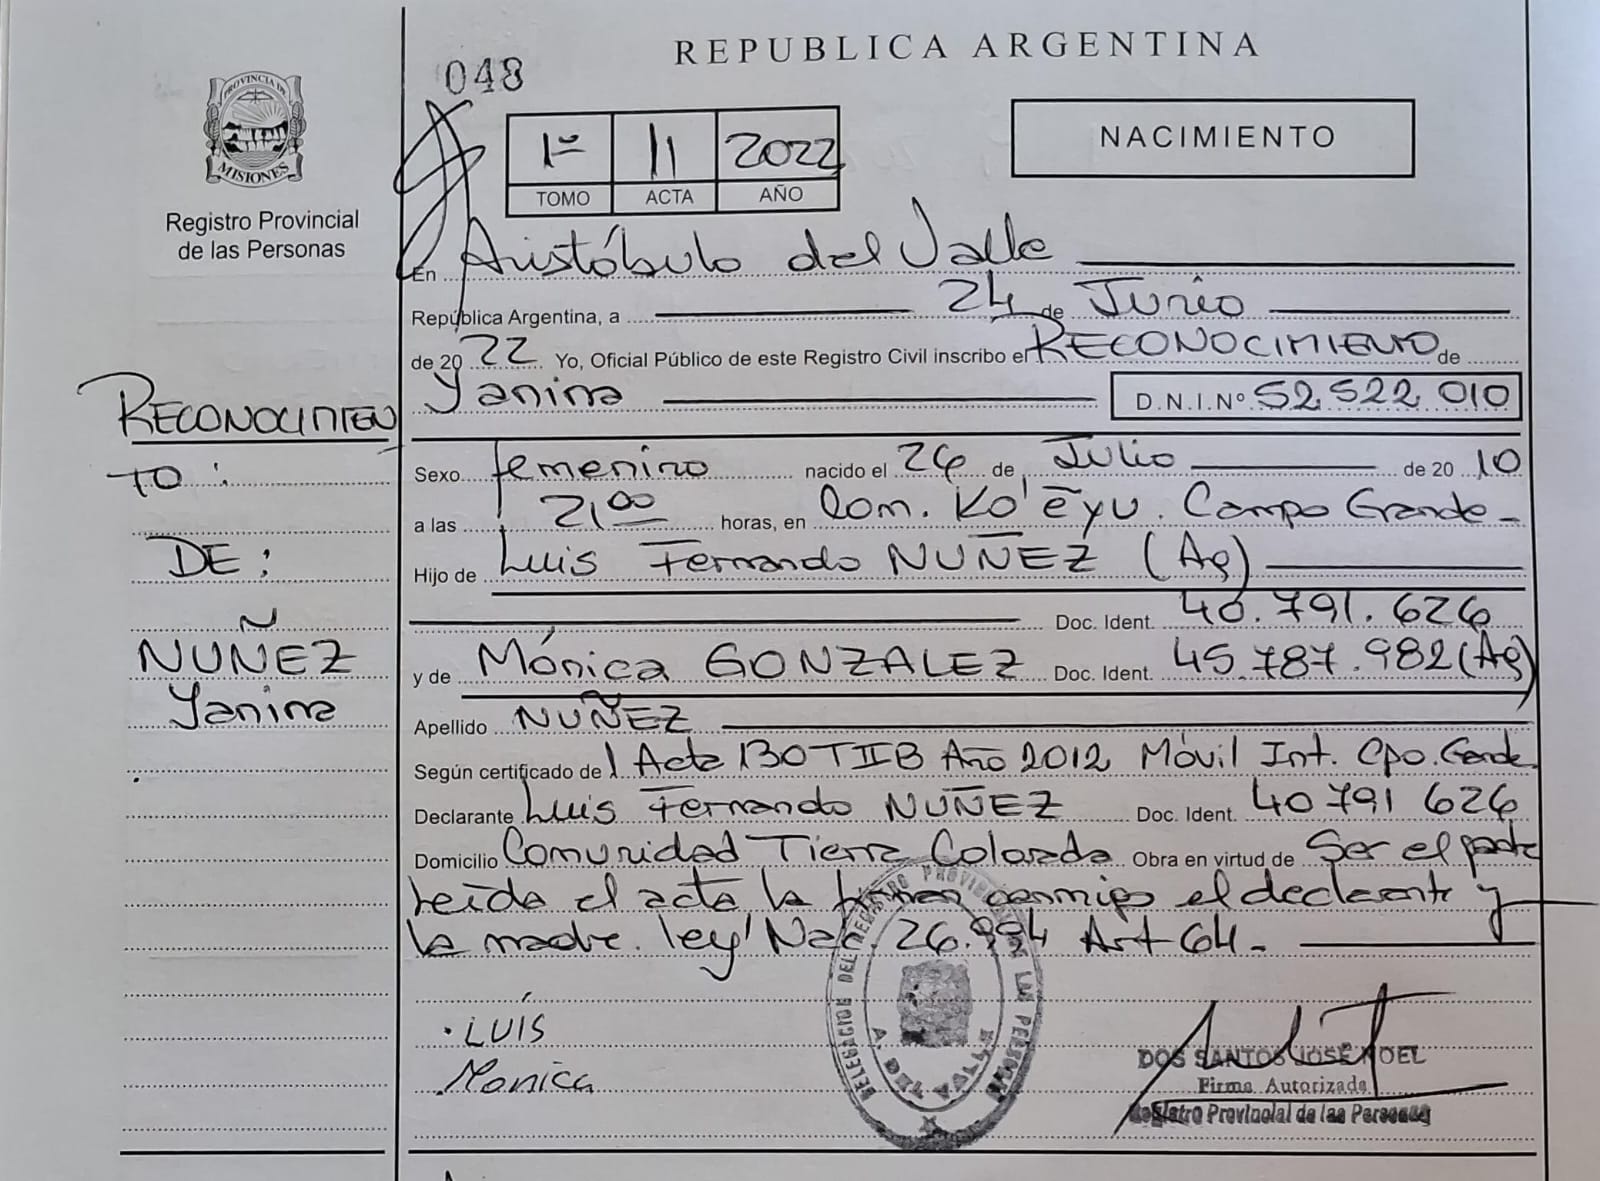 048
REPUBLICA ARGENTINA
PROVINCIA DE
MISIONES
Registro Provincial
de las Personas
1º 11 2022
TOMO ACTA AÑO
NACIMIENTO
En Aristóbulo del Valle
República Argentina, a 24 de Junio
de 2022 Yo, Oficial Público de este Registro Civil inscribo el RECONOCIMIENTO de
Yanina D.N.I.Nº 52 522 010
Sexo femenino nacido el 26 de Julio de 2010
a las 21,00 horas, en Com. Ko'ẽyu. Campo Grande-
Hijo de Luis Fernando NUÑEZ (Ag)
Doc. Ident. 40.791.626
y de Mónica GONZALEZ Doc. Ident. 45.787.982 (Ag)
Apellido NUÑEZ
Según certificado de Acta 130 T II B Año 2012 Móvil Int. Cpo. Gande
Declarante Luis Fernando NUÑEZ Doc. Ident. 40 791 626
Domicilio Comunidad Tierra Colorada Obra en virtud de Ser el padre
Leída el acta la firman conmigo el declarante y
la madre. ley Nac. 26.994 Art 64-
RECONOCIMIEN
TO:
DE:
NUÑEZ
Yanina
LUÍS
Monica
DELEGACION DEL REGISTRO PROVINCIAL DE LAS PERSONAS
A. DEL VALLE
DOS SANTOS JOSÉ NOEL
Firma Autorizada
Registro Provincial de las Personas